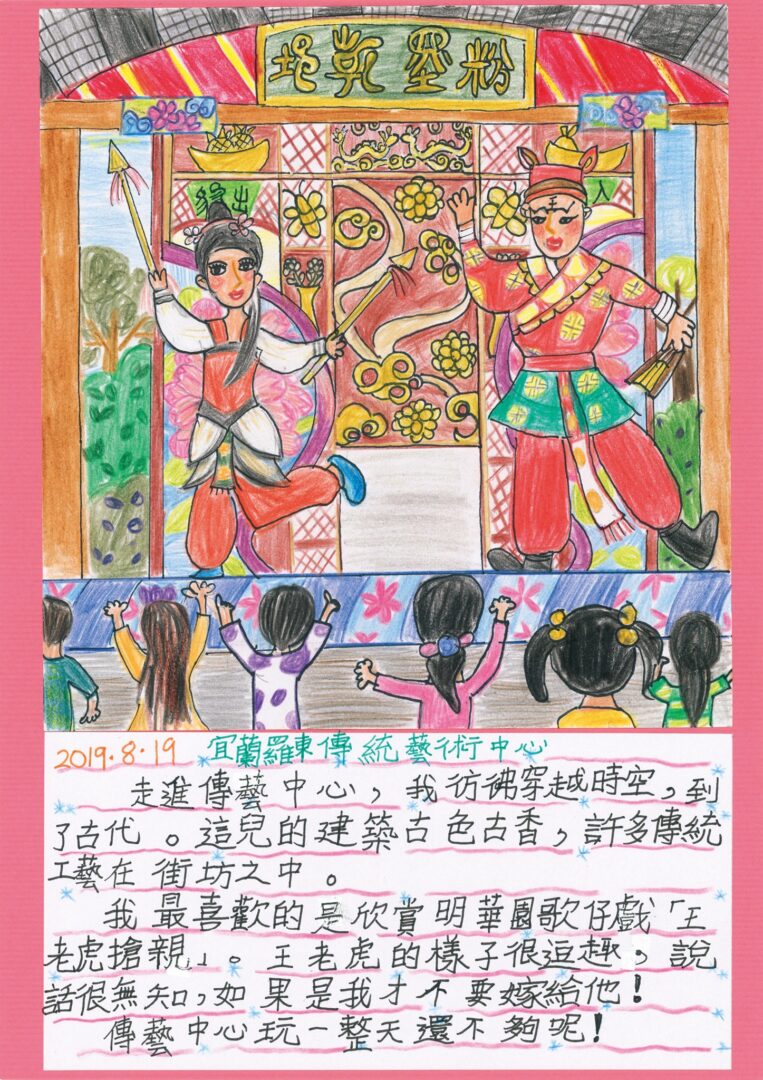 粉墨乾坤
出
入
王
2019.8.19 宜蘭羅東傳統藝術中心
走進傳藝中心，我彷彿穿越時空，到
了古代。這兒的建築古色古香，許多傳統
工藝在街坊之中。
我最喜歡的是欣賞明華園歌仔戲「王
老虎搶親」。王老虎的樣子很逗趣，說
話很無知，如果是我才不要嫁給他！
傳藝中心玩一整天還不夠呢！